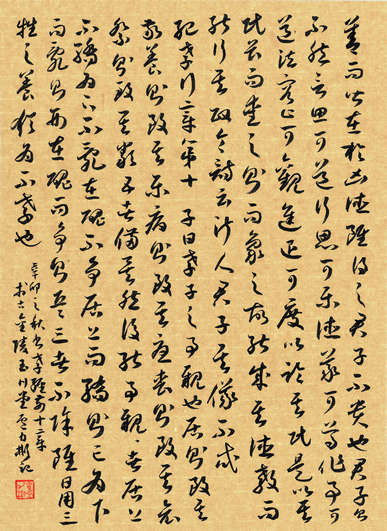 善而皆在於凶德雖得之君子不貴也君子則
不然言思可道行思可樂德義可尊作事可
法容止可觀進退可度以臨其民是以其
民畏而愛之則而象之故能成其德教而
行其政令詩云淑人君子其儀不忒
紀孝行章第十 子曰孝子之事親也居則致其
敬養則致其樂病則致其憂喪則致其哀
祭則致其嚴五者備矣然後能事親者居上
不驕為下不亂在醜不爭居上而驕則亡為下
而亂則刑在醜而爭則兵三者不除雖日用三
牲之養猶為不孝也
辛卯之秋書孝經十二章
金陵玉川堂